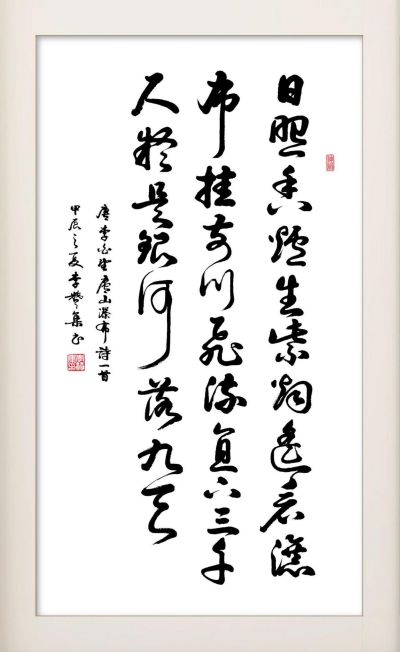 日照香爐生紫烟遙看瀑
布挂前川飛流直下三千
尺疑是銀河落九天
唐李白望廬山瀑布詩一首
甲辰之夏李集書